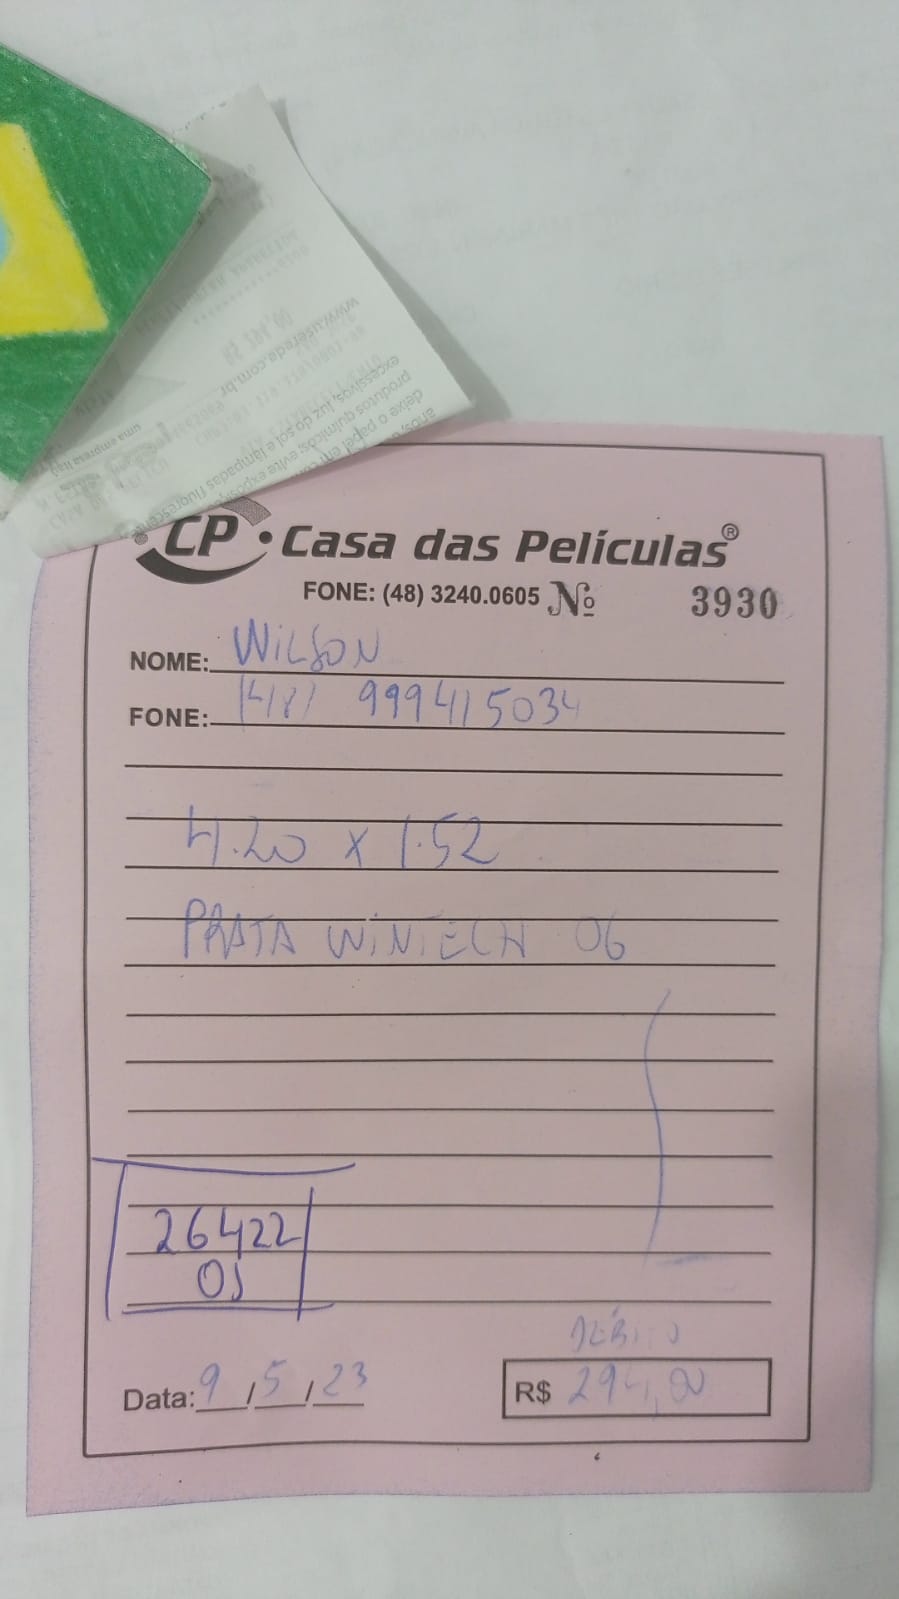 www.userede.com.br
uma empresa Ita
deixe o papel em
produtos químicos, evite exposiç
excessivos, luz do sol e lâmpadas fluorescente
CP • Casa das Películas®
FONE: (48) 3240.0605 Nº 3930
NOME: WILSON
FONE: (48) 999415034
4.20 x 1.52
PRATA WINTECH 06
26422
OS
DÉBITO
Data: 9 / 5 / 23 R$ 294,00